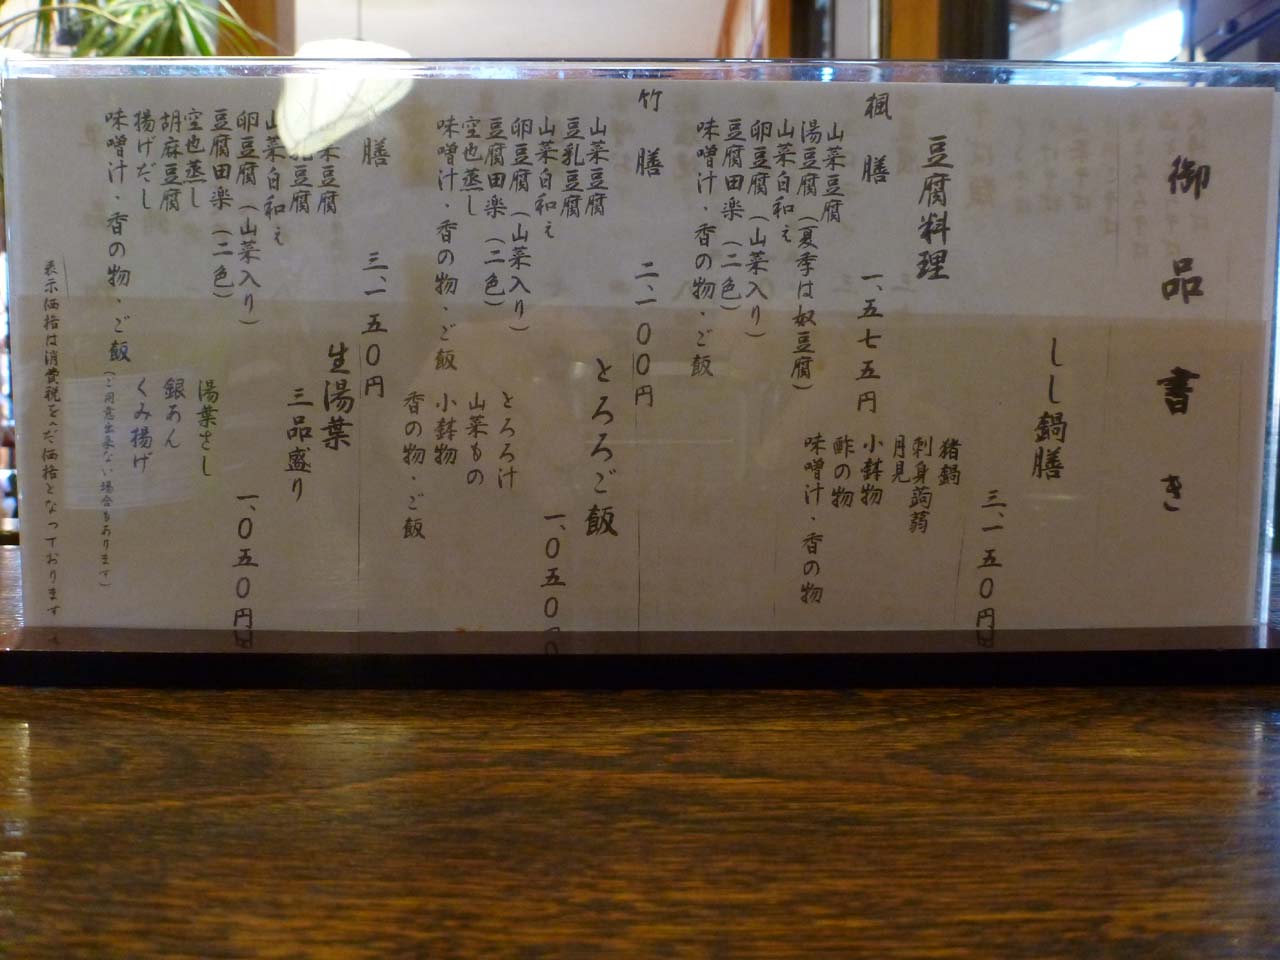 御品書き
しし鍋膳
三、一五〇円
猪鍋
刺身蒟蒻
月見
小鉢物
酢の物
味噌汁・香の物
豆腐料理
楓膳
一、五七五円
山菜豆腐
湯豆腐（夏季は奴豆腐）
山菜白和え
卵豆腐（山菜入り）
豆腐田楽（二色）
味噌汁・香の物・ご飯
竹膳
二、一〇〇円
山菜豆腐
豆乳豆腐
山菜白和え
卵豆腐（山菜入り）
豆腐田楽（二色）
空也蒸し
味噌汁・香の物・ご飯
とろろご飯
一、〇五〇
とろろ汁
山菜もの
小鉢物
香の物・ご飯
膳
三、一五〇円
菜豆腐
乳豆腐
山菜白和え
卵豆腐（山菜入り）
豆腐田楽（二色）
空也蒸し
胡麻豆腐
揚げだし
味噌汁・香の物・ご飯
生湯葉
三品盛り
一、〇五〇円
湯葉さし
銀あん
くみ揚げ
（ご用意出来ない場合もあります）
表示価格は消費税を含だ価格となっております